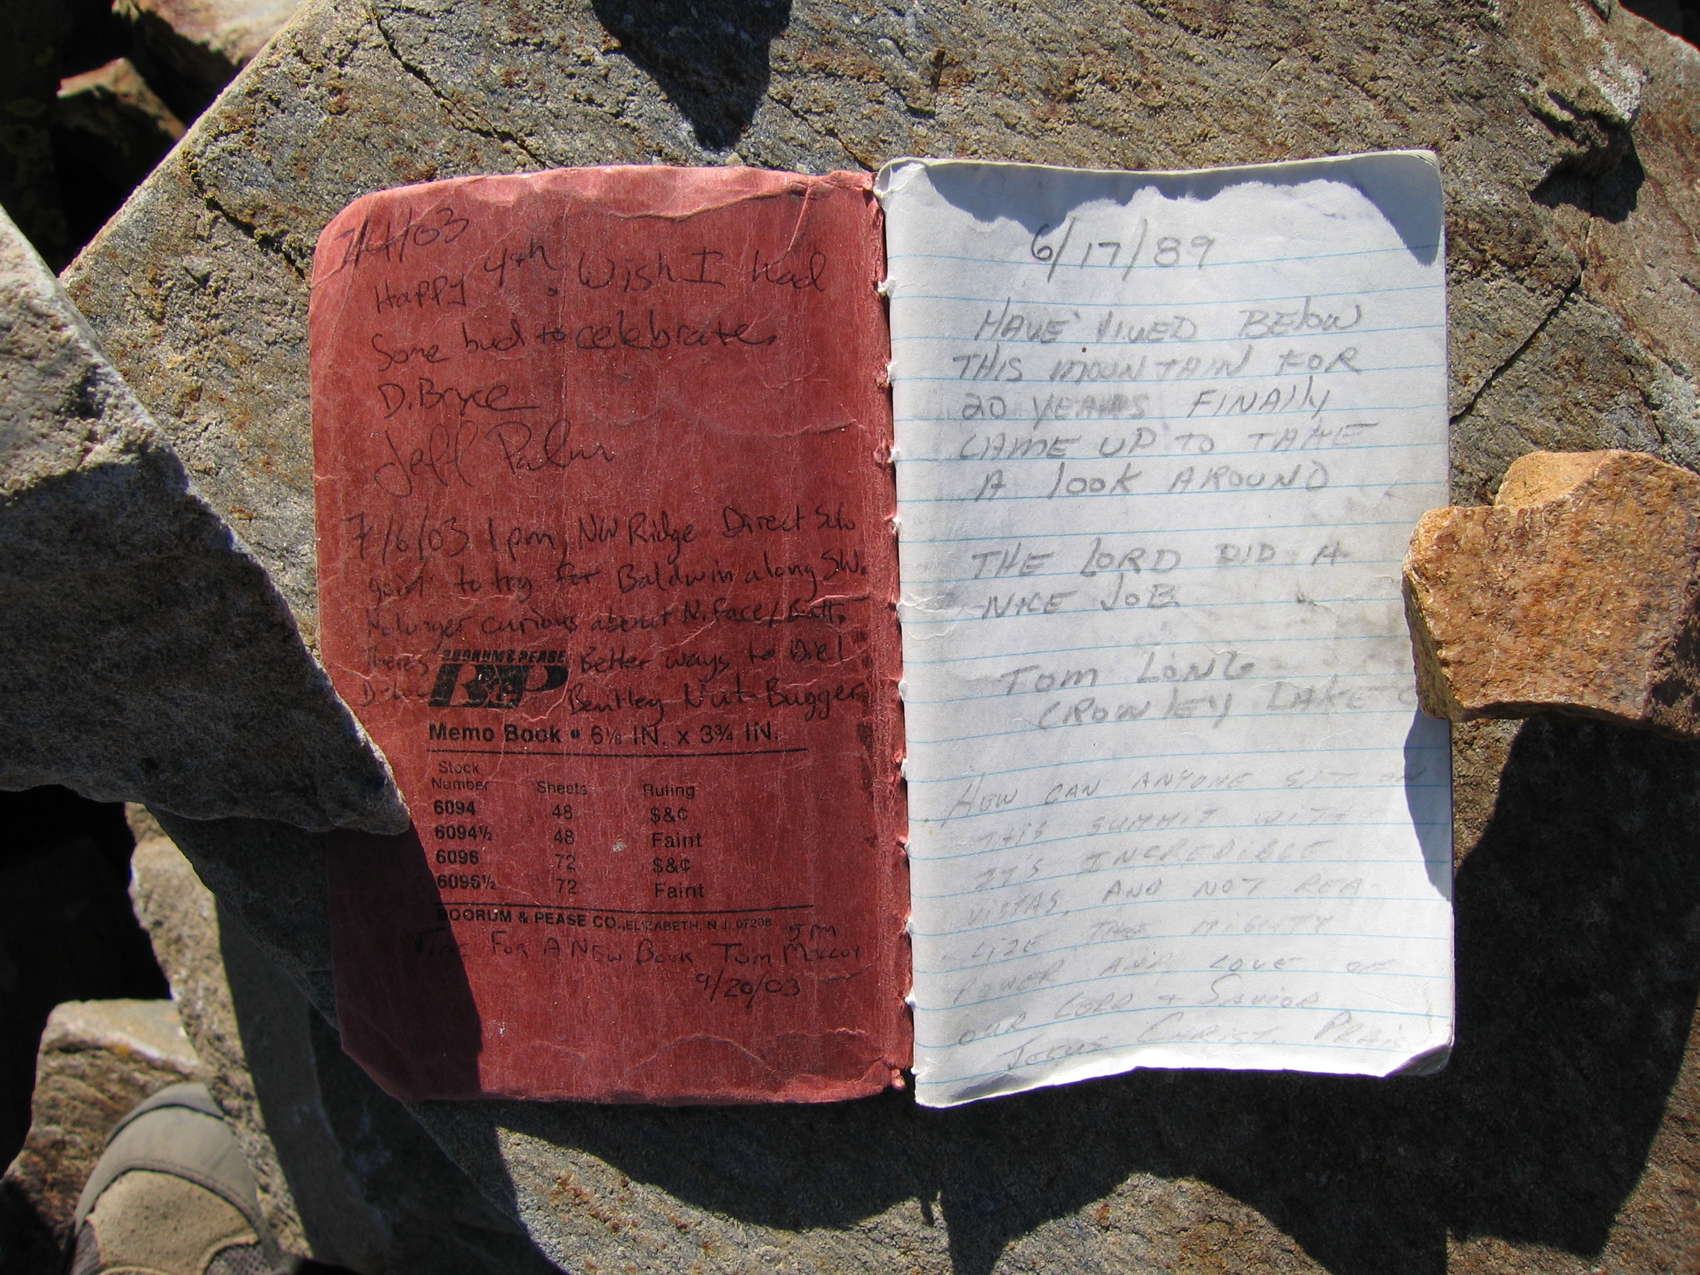 7/4/03
Happy 4th. Wish I had
Some bud to celebrate,
D. Bryce
Jeff
7/6/03 1pm, NW Ridge Direct Solo
goin' to try for Baldwin along SW.
No longer curious about N. Face/
Theres Better ways to Die!
Bentley Nut-Bugger
BOORUM & PEASE
B&P
Memo Book • 6⅛ IN. x 3¾ IN.
Stock Number Sheets Ruling
6094 48 $&¢
6094½ 48 Faint
6096 72 $&¢
6096½ 72 Faint
BOORUM & PEASE CO., ELIZABETH, N.J. 07208
5 PM
TIME FOR A NEW BOOK TOM
9/20/03
6/17/89
HAVE LIVED BELOW
THIS MOUNTAIN FOR
20 YEARS FINALLY
CAME UP TO TAKE
A LOOK AROUND
THE LORD DID A
NICE JOB
TOM LONG
CROWLEY LAKE
HOW CAN ANYONE SIT ON
THIS SUMMIT WITH
IT'S INCREDIBLE
VISTAS, AND NOT REA
LIZE THE MIGHTY
POWER AND LOVE OF
OUR LORD + SAVIOR
JESUS CHRIST. PRAISE